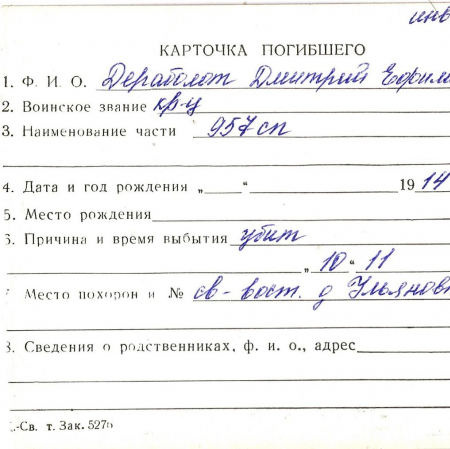 инв
КАРТОЧКА ПОГИБШЕГО
1. Ф. И. О. Дераболот Дмитрий Ефим
2. Воинское звание кр-ц
3. Наименование части 957 сп
4. Дата и год рождения „ “ 1914
5. Место рождения
6. Причина и время выбытия убит
„ 10 “ 11
Место похорон и № св-вост. д Ульянов
8. Сведения о родственниках, ф. и. о., адрес
-Св. т. Зак. 527б